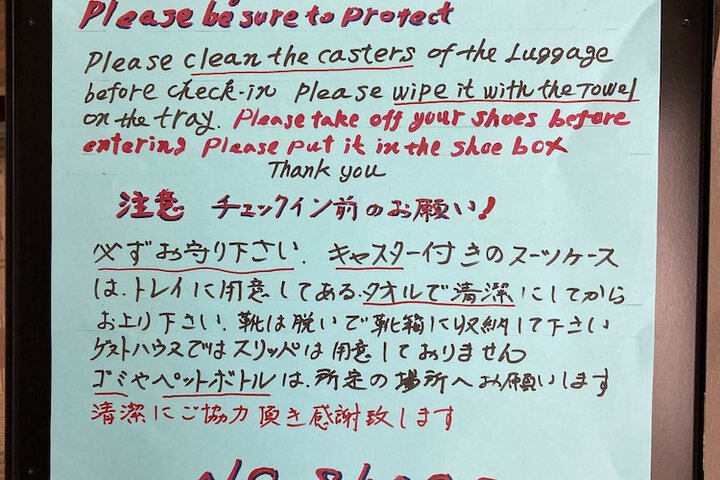 Please be sure to protect
Please clean the casters of the Luggage
before check-in Please wipe it with the Towel
on the tray. Please take off your shoes before
entering Please put it in the shoe box
Thank you
注意 チェックイン前のお願い!
必ずお守り下さい. キャスター付きのスーツケース
は.トレイに用意してある.タオルで清潔にしてから
お上り下さい.靴は脱いで靴箱に収納して下さい
ゲストハウスではスリッパは用意しておりません
ゴミやペットボトルは.所定の場所へお願いします
清潔にご協力頂き感謝致します
NO Shoes